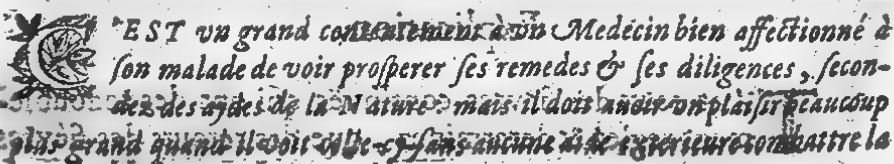 C'EST vn grand contentement à vn Medecin bien affectionné à
ſon malade de voir proſperer ſes remedes & ſes diligences, ſecon-
dez des aydes de la Nature: mais il doit auoir vn plaiſir beaucoup
plus grand quand il voit celle-cy ſans aucune aide exterieure combattre la